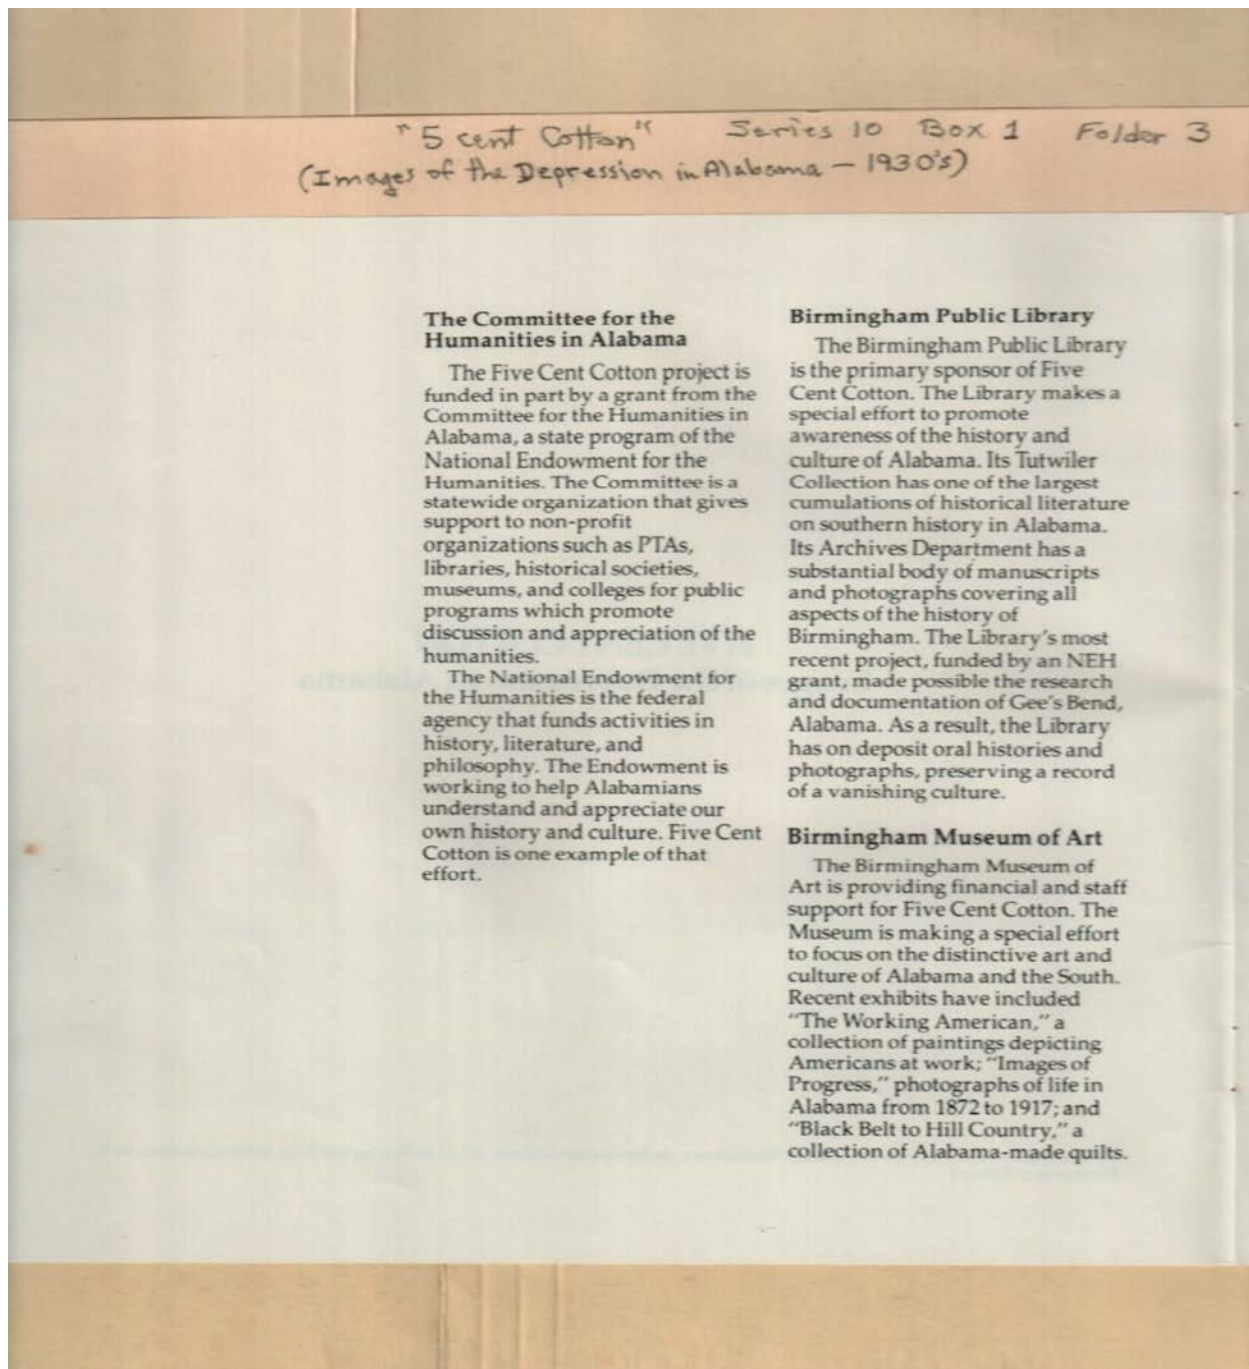 "5 cent Cotton" Series 10 Box 1 Folder 3
(Images of the Depression in Alabama — 1930's)
The Committee for the
Humanities in Alabama
The Five Cent Cotton project is
funded in part by a grant from the
Committee for the Humanities in
Alabama, a state program of the
National Endowment for the
Humanities. The Committee is a
statewide organization that gives
support to non-profit
organizations such as PTAs,
libraries, historical societies,
museums, and colleges for public
programs which promote
discussion and appreciation of the
humanities.
The National Endowment for
the Humanities is the federal
agency that funds activities in
history, literature, and
philosophy. The Endowment is
working to help Alabamians
understand and appreciate our
own history and culture. Five Cent
Cotton is one example of that
effort.
Birmingham Public Library
The Birmingham Public Library
is the primary sponsor of Five
Cent Cotton. The Library makes a
special effort to promote
awareness of the history and
culture of Alabama. Its Tutwiler
Collection has one of the largest
cumulations of historical literature
on southern history in Alabama.
Its Archives Department has a
substantial body of manuscripts
and photographs covering all
aspects of the history of
Birmingham. The Library's most
recent project, funded by an NEH
grant, made possible the research
and documentation of Gee's Bend,
Alabama. As a result, the Library
has on deposit oral histories and
photographs, preserving a record
of a vanishing culture.
Birmingham Museum of Art
The Birmingham Museum of
Art is providing financial and staff
support for Five Cent Cotton. The
Museum is making a special effort
to focus on the distinctive art and
culture of Alabama and the South.
Recent exhibits have included
"The Working American," a
collection of paintings depicting
Americans at work; "Images of
Progress," photographs of life in
Alabama from 1872 to 1917; and
"Black Belt to Hill Country," a
collection of Alabama-made quilts.